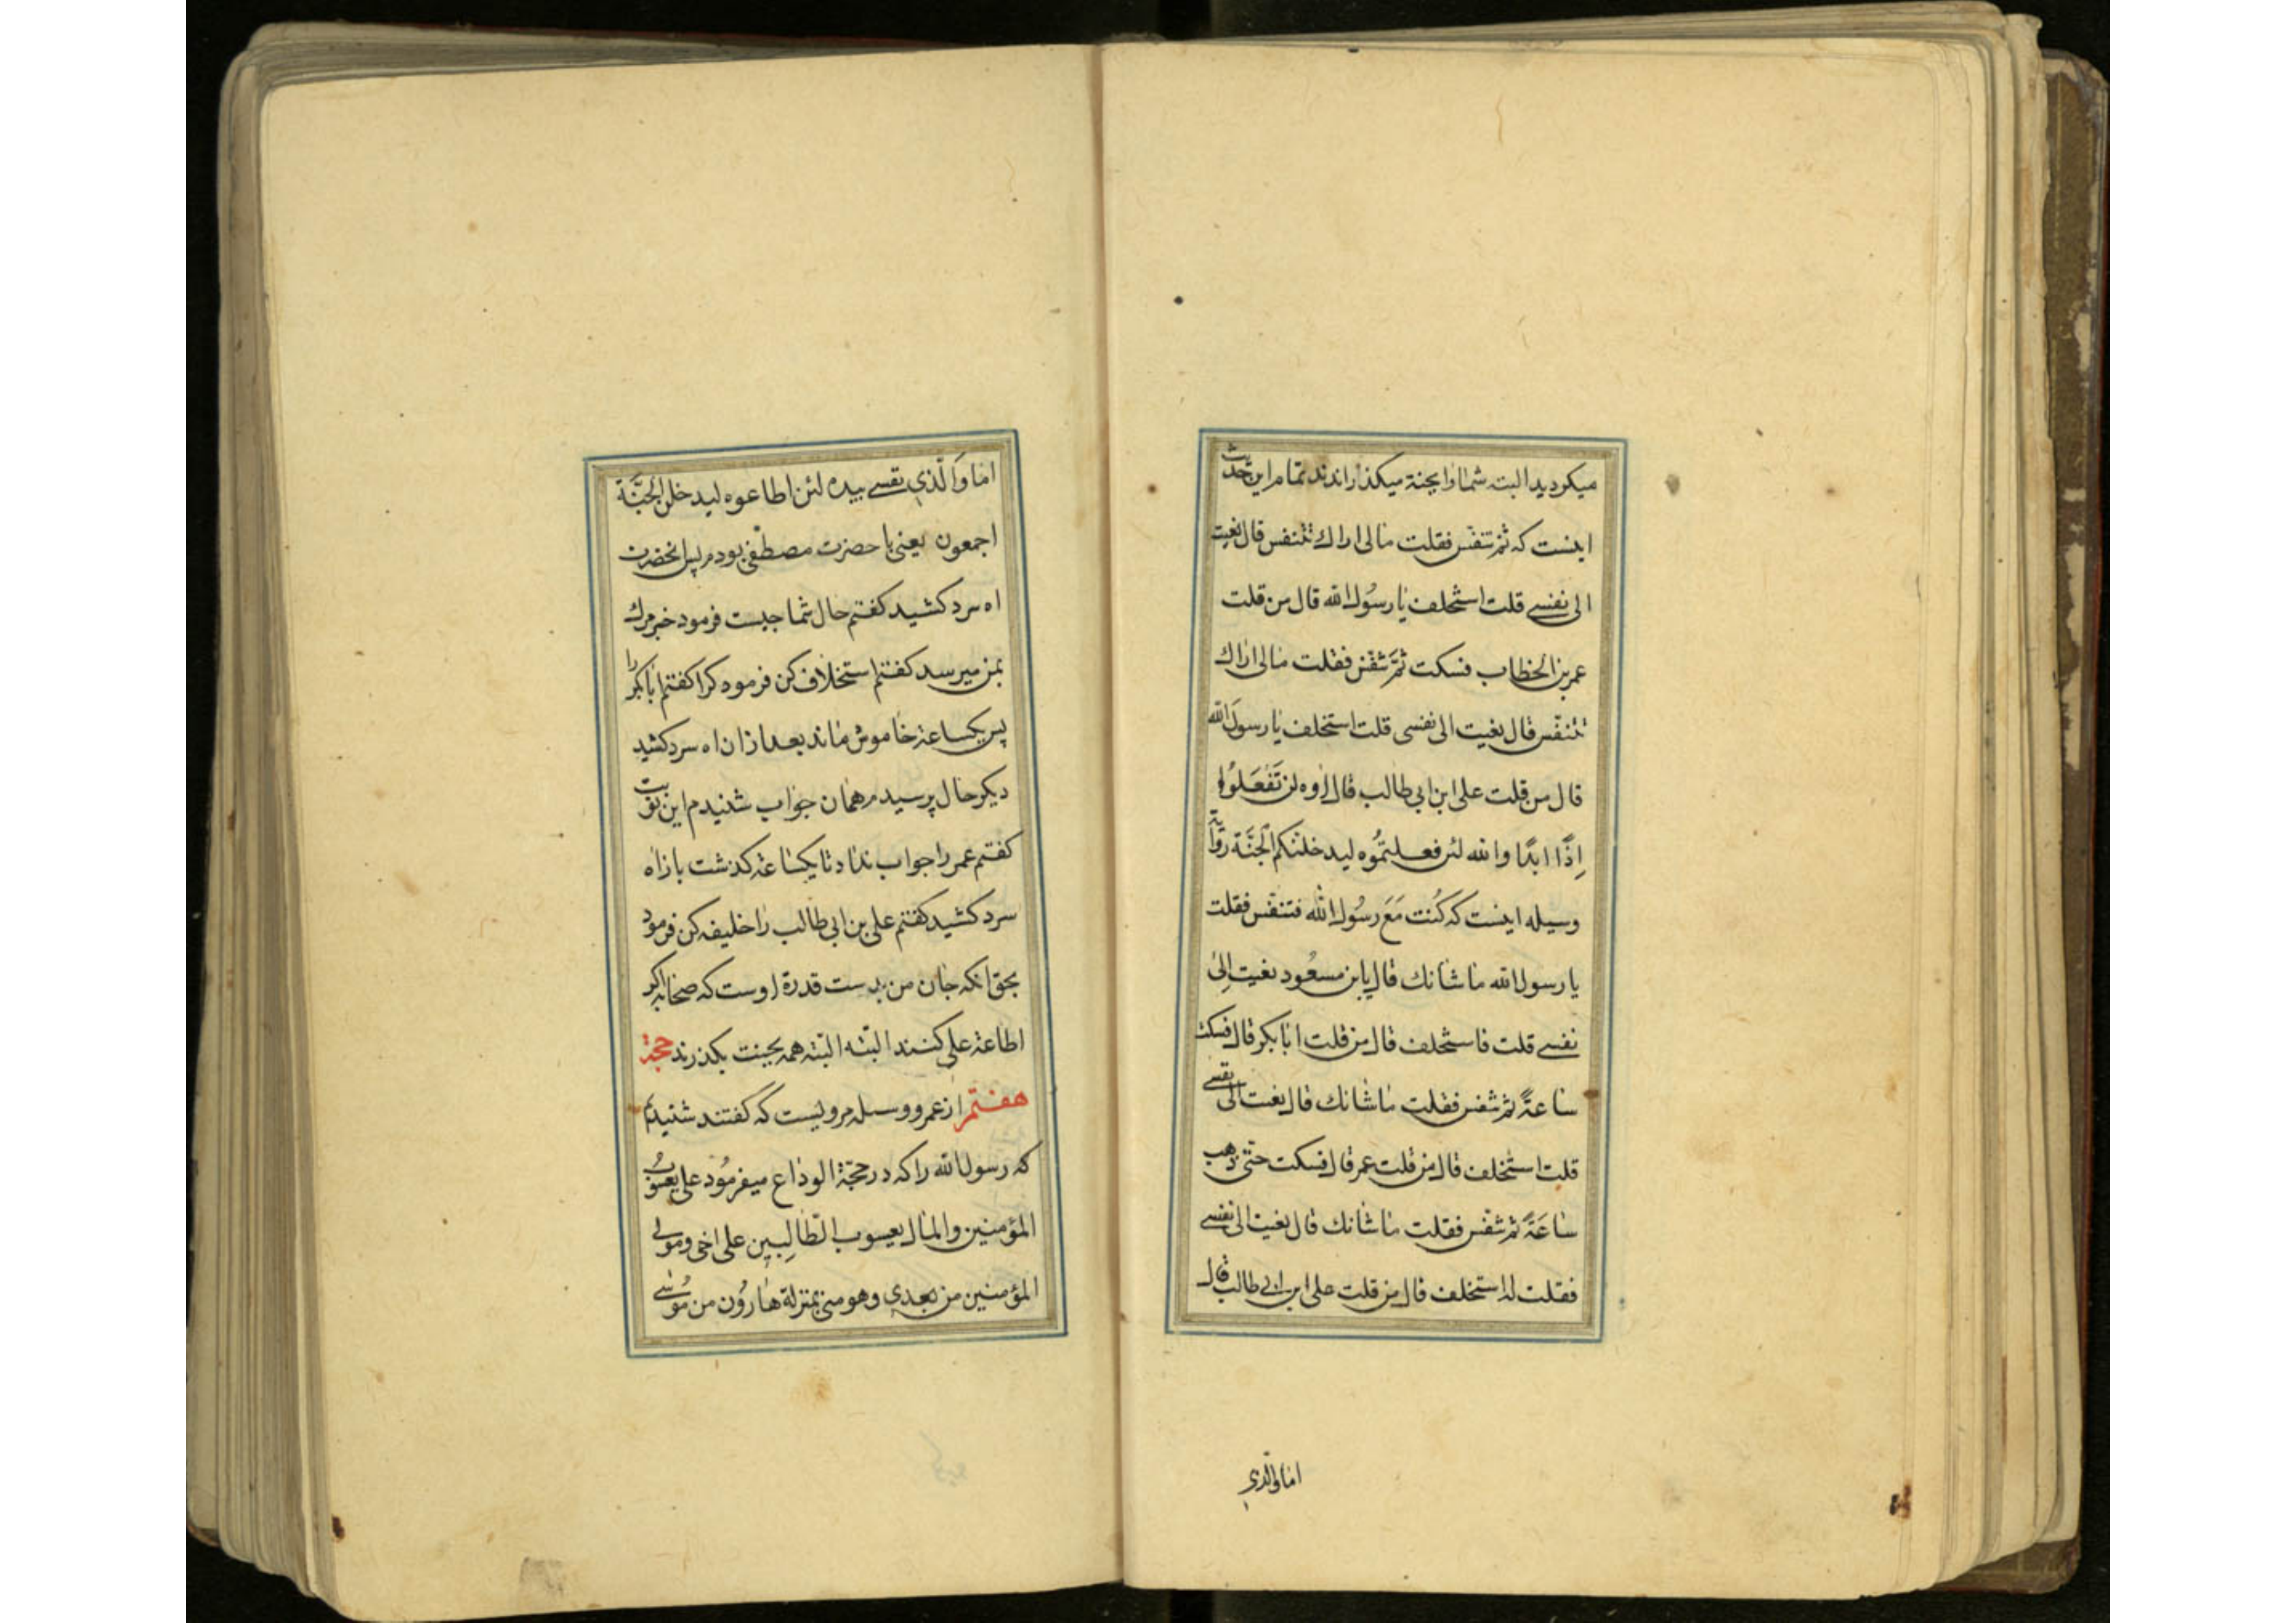 میکردید البته شما را بجنة میکذراندند تمام این حدیث
اینست که ثم تنفس فقلت مالی اراك تتنفس قال نعیت
الی نفسی قلت استخلف یا رسول الله قال من قلت
عمر بن الخطاب فسکت ثم تنفس فقلت مالی اراك
تتنفس قال نعیت الی نفسی قلت استخلف یا رسول الله
قال من قلت علی ابن ابی طالب قال اوه لن تفعلوا
اِذًا ابدًا والله لئن فعلتموه لیدخلنکم الجنّة روایة
وسیله اینست که کنت مَعَ رسُول الله فتنفس فقلت
یا رسول الله ما شانك قال یابن مسعُود نعیت اِلیٰ
نفسی قلت فاستخلف قال من قلت ابابکر قال فسکت
ساعةً ثم تنفس فقلت ما شانك قال نعیت الی نفسی
قلت استخلف قال من قلت عمر قال فسکت حتی ذهب
ساعَةً ثم تنفس فقلت ما شانك قال نعیت الی نفسی
فقلت له استخلف قال من قلت علی ابن ابی طالب قال
اما والذی
اما وَالّذی نفسی بیده لئن اطاعوه لیدخلن الجَنَّة
اجمعون یعنی با حضرت مصطفی بودم پس انحضرت
اه سرد کشید کفتم حال شما چیست فرمود خبر مرك
بمن میرسد کفتم استخلاف کن فرمود کرا کفتم ابابکر را
پس یکساعة خاموش ماند بعد ازان اه سرد کشید
دیکر حال پرسیدم همان جواب شنیدم این نوبت
کفتم عمر را جواب نداد تا یکساعة کذشت باز اه
سرد کشید کفتم علی بن ابی طالب را خلیفه کن فرمود
بحق انکه جان من بدست قدرة اوست که صحابه اکر
اطاعة علی کنند البته البته همه بجنت بکذرند حجة
هفتم از عمرو وسله مرویست که کفتند شنیدیم
که رسول الله را که در حجّة الوداع میفرمُود علی یعسُوب
المؤمنین والمال یعسوب الظالِمین علی اخی ومولی
المؤمنین من بعدی وهو منی بمنزلة هارُون من مُوسی